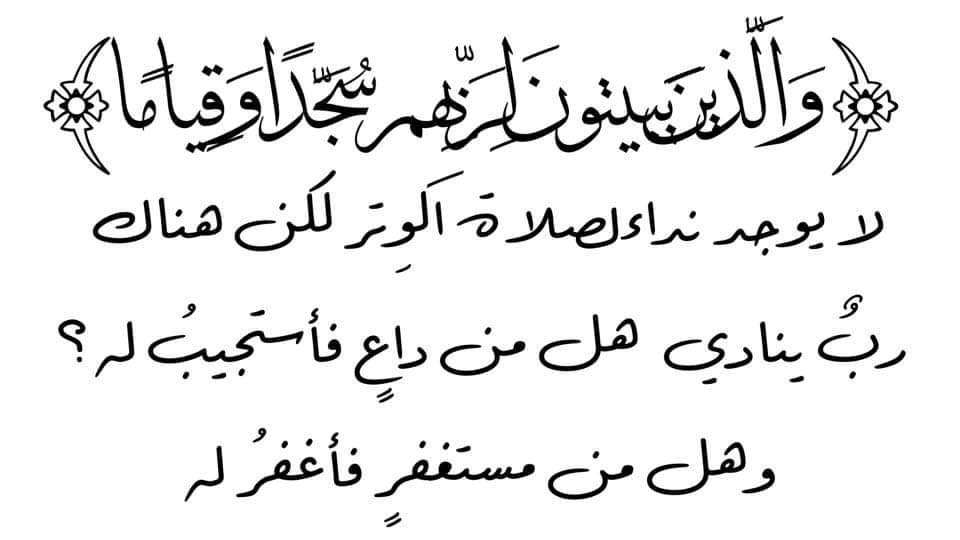 ﴿وَالَّذين يَبيتون لِرَبِّهم سُجّدًا وَقِيامًا﴾
لا يوجد نداء لصلاة اَلوِتر لكن هناك
ربٌ ينادي هل من داعٍ فأستجيبُ له ؟
وهل من مستغفرٍ فأغفرُ له